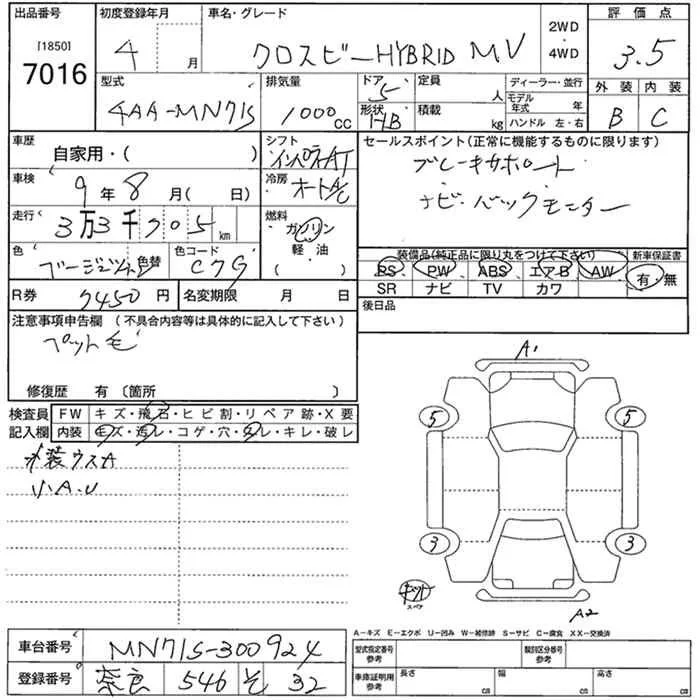 出品番号
[1850]
7016
初度登録年月
4 月
車名・グレード
クロスビーHYBRID MV
2WD
・
4WD
評価点
3.5
型式
4AA-MN71S
排気量
1000cc
ドア
5
形状
HB
定員
人
積載
kg
ディーラー・並行
モデル年式 年
ハンドル 左・右
外装 内装
B C
車歴
自家用・( )
シフト
インパネAT
セールスポイント(正常に機能するものに限ります)
ブレーキサポート
ナビ・バックモニター
車検
9年8月( 日)
冷房
オートA/C
走行
3万3千705km
燃料
ガソリン
軽・油
( )
色
色替
色コード
C7G
装備品(純正品に限り丸をつけて下さい)
PS PW ABS エアB AW
SR ナビ TV カワ
新車保証書
有・無
R券
7450円
名変期限 月 日
後日品
注意事項申告欄 (不具合内容等は具体的に記入して下さい)
ペット毛
修復歴 有 〔箇所 〕
検査員記入欄
FW キズ・飛石・ヒビ割・リペア跡・X要
内装 キズ・汚レ・コゲ・穴・スレ・キレ・破レ
外装ウスA
小A.U
A1
5 5
3 3
スペア
A2
A-キズ E-エクボ U-凹み W-補修跡 S-サビ C-腐食 XX-交換済
車台番号
MN71S-300924
登録番号
奈良 546 そ 32
型式指定番号
参考
類別区分番号
参考
車庫証明用
参考
長さ cm 幅 cm 高さ cm